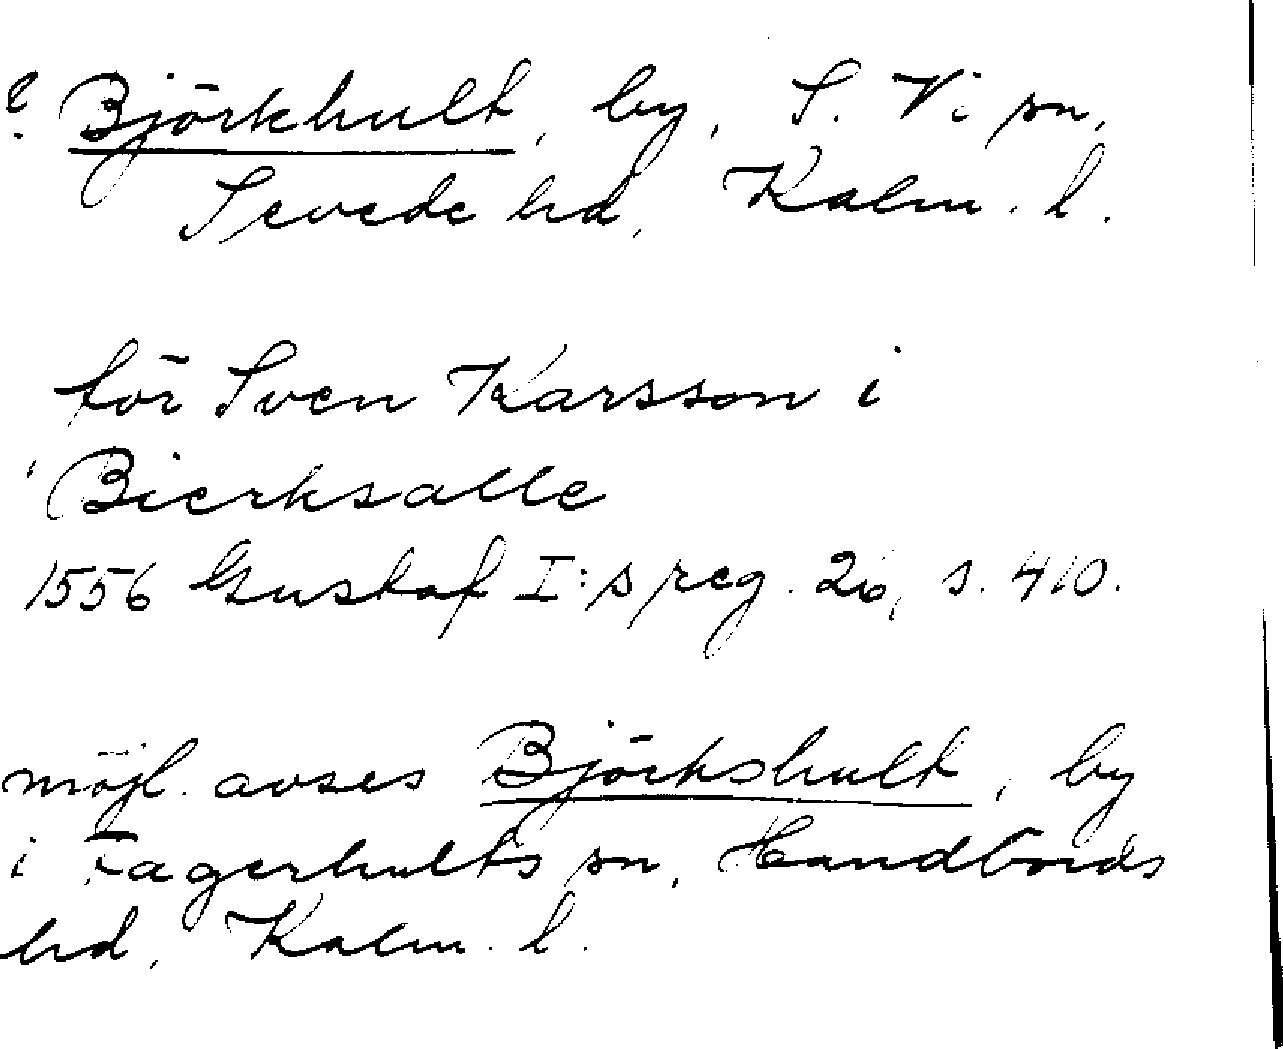 ? Björkhult, by, S. Vi sn,
Sevede hd, Kalm. l.
för Sven Karsson i
Bierksalle
1556 Gustaf I:s reg. 26, s. 410.
möjl. avses Björkshult, by
i Fagerhults sn, Handbörds
hd, Kalm. l.